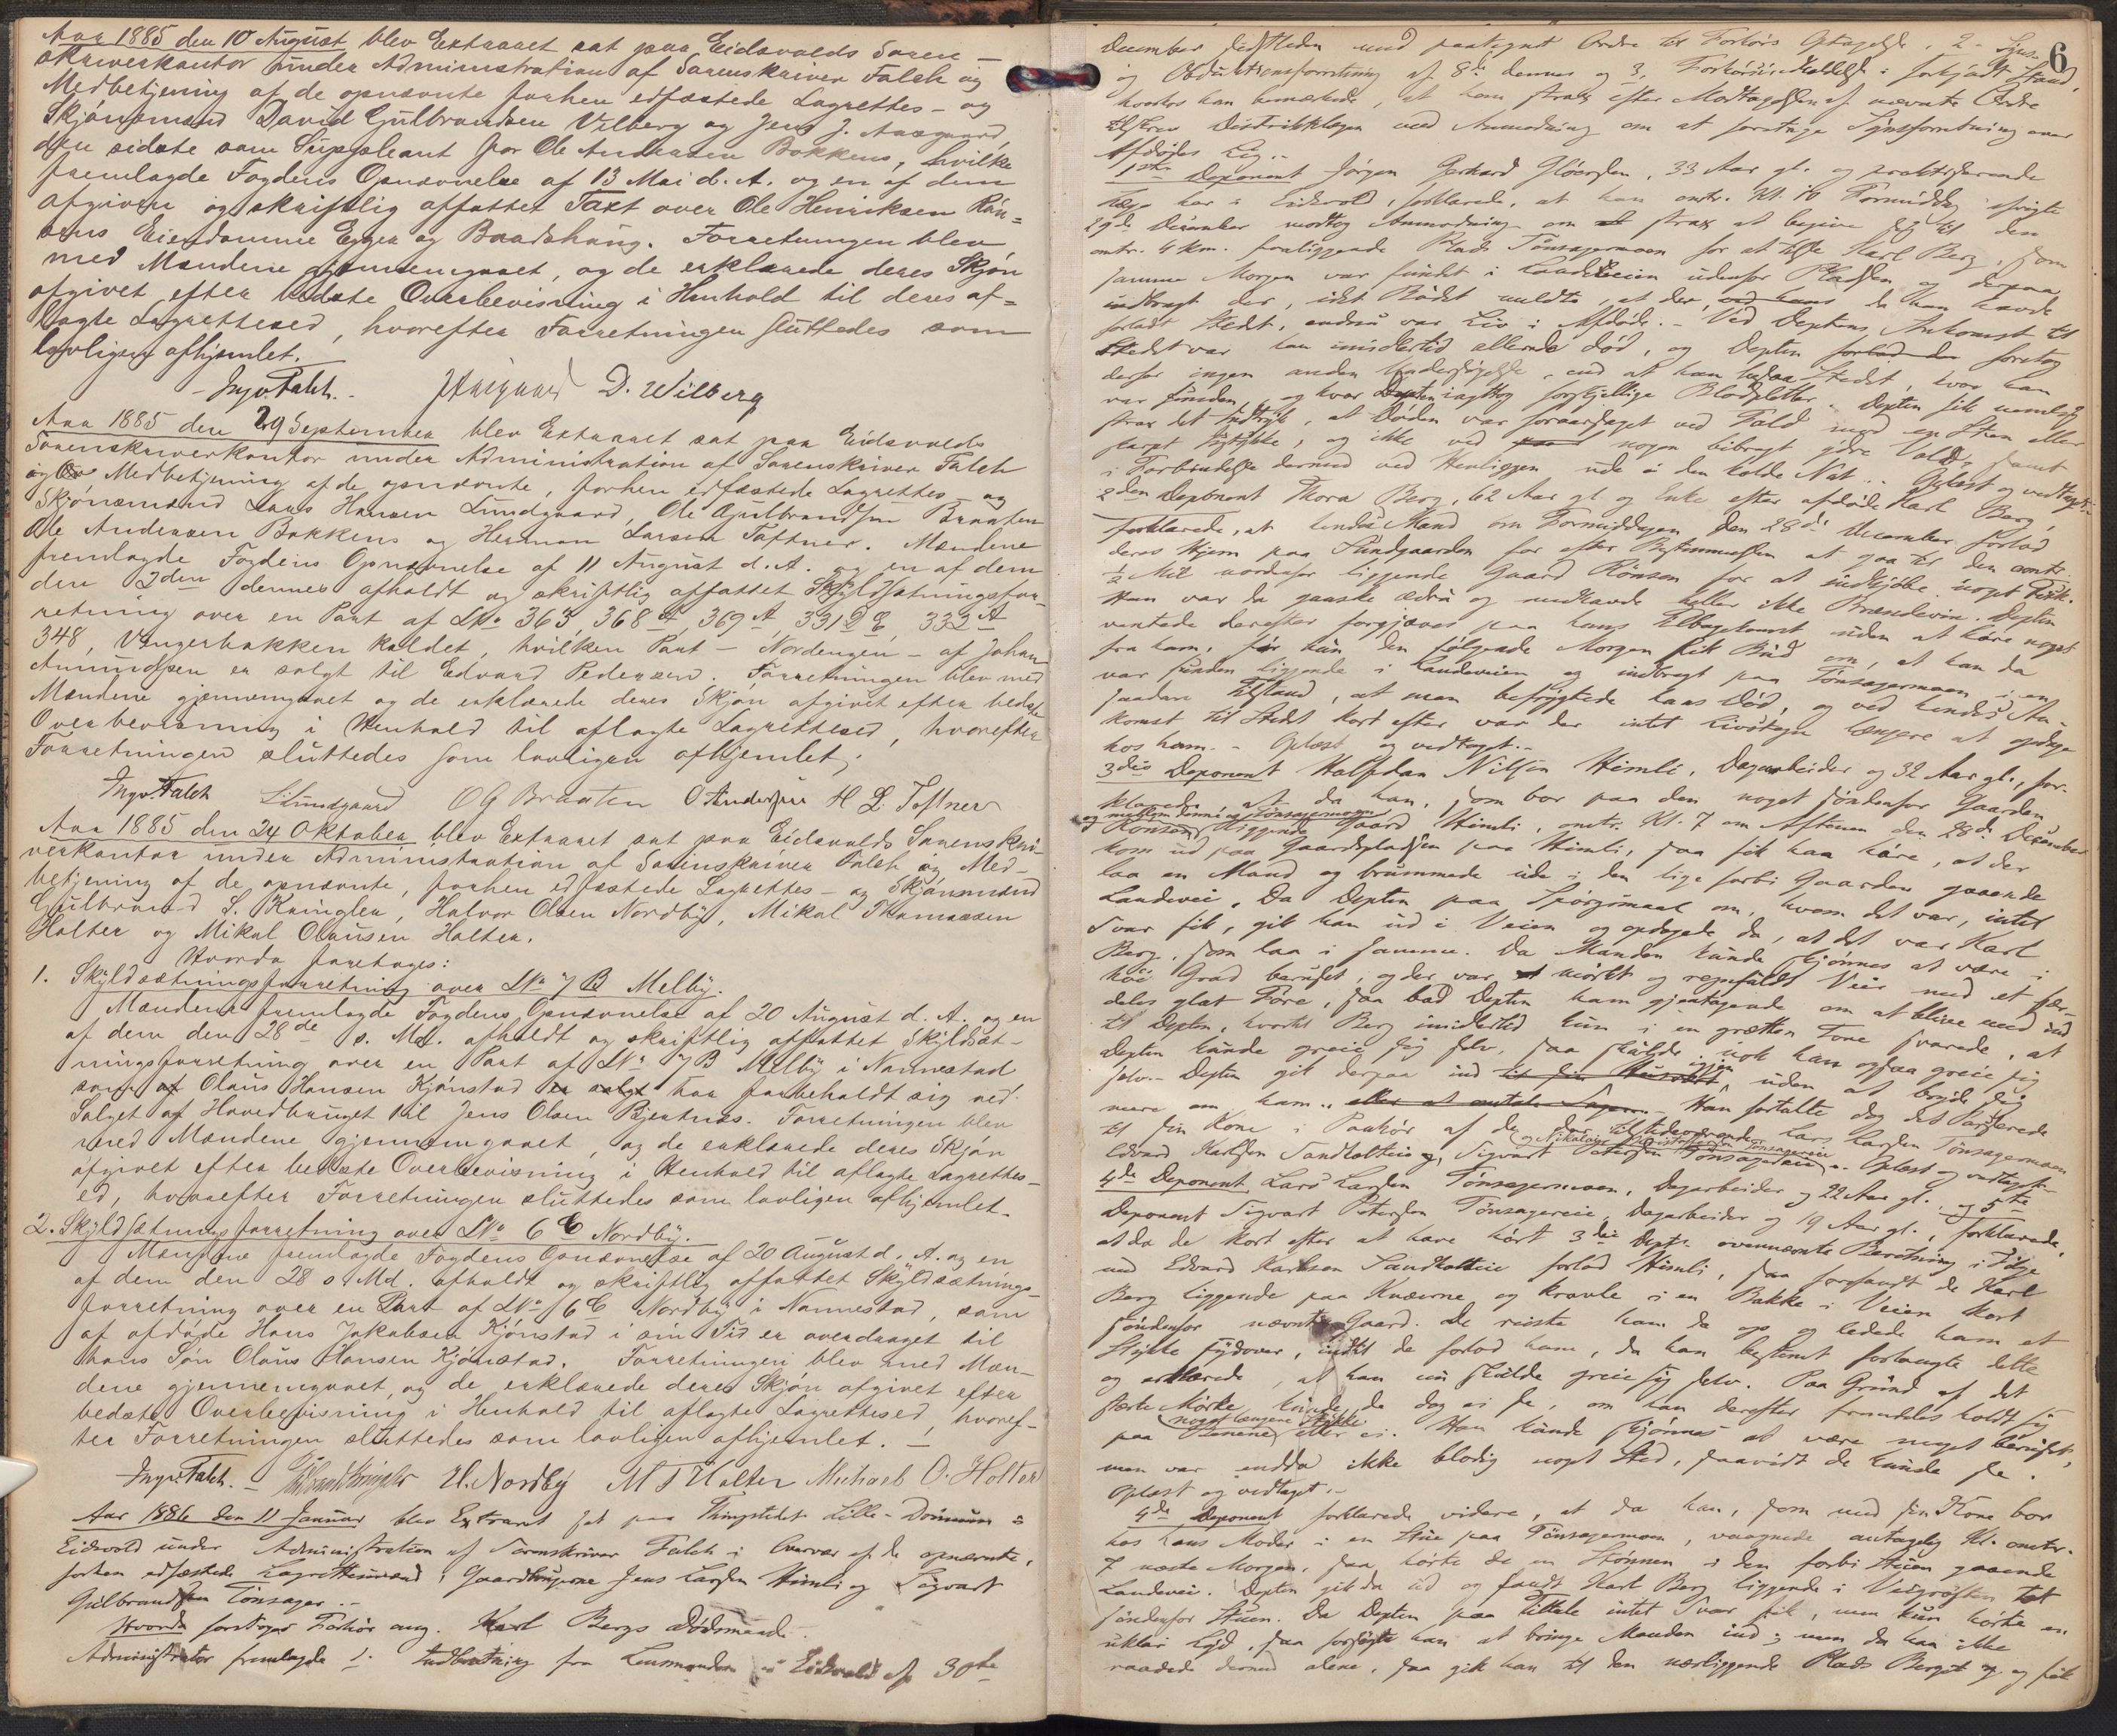 Aar 1885 den 10 August blev Extraret sat paa Eidsvolds Soren-
skriverkontor under Administration af Sorenskriver Falch og
Medbetjening af de opnævnte forhen edfæstede Lagrettes- og
Skjönsmænd David Gulbrandsen Vilberg og Jens J. Aasgaard,
den sidste som Suppleant for Ole Andersen Bakkens, hvilke
fremlagde Fogdens Opnævnelse af 13 Mai d. A. og en af dem
afgiven og skriftlig affattet Taxt over Ole Henriksen Rön-
sens Eiendomme Egger og Baadshaug. Forretningen blev
med Mændene gjennemgaaet, og de erklærede deres Skjön
afgivet efter bedste Overbevisning i Henhold til deres af-
lagte Lagrettesed, hvorefter Forretningen sluttedes som
lovligen afhjemlet.
Ingv. Falch. J Aasgaard D. Wilberg
Aar 1885 den 29 September blev Extraret sat paa Eidsvolds
Sorenskriverkontor under Administration af Sorenskriver Falch
og Medbetjening af de opnævnte, forhen edfæstede Lagrettes- og
Skjönsmænd Lars Hansen Lundgaard, Ole Gulbrandsen Braaten
Ole Andersen Bakkens og Herman Larsen Toftner. Mændene
fremlagde Fogdens Opnævnelse af 11 August d. A. og en af dem
den 2den dennes afholdt og skriftlig affattet Skyldsætningsfor-
retning over en Part af LNo 363, 368 A, 369 A, 331 D E, 332 A
348, Vengerbakken kaldet, hvilken Part - Nordengen - af Johan
Amundsen er solgt til Edvard Pedersen. Forretningen blev med
Mændene gjennemgaaet og de erklærede deres Skjön afgivet efter bedste
Overbevisning i Henhold til aflagte Lagrettesed, hvorefter
Forretningen sluttedes som lovligen afhjemlet,
Ingv. Falch L Lundgaard O G Braaten O Andersen H L Toftner
Aar 1885 den 24 Oktober blev Extraret sat paa Eidsvolds Sorenskri-
verkontor under Administration af Sorenskriver Falch og Med-
betjening af de opnævnte, forhen edfæstede Lagrettes- og Skjönsmænd
Gulbrand S. Kringler, Halvor Olsen Nordby, Mikal Thomassen
Holter og Mikal Olausen Holter.
Hvorda foretoges:
1. Skyldsætningsforretning over LNo 7 B Melby.
Mændene fremlagde Fogdens Opnævnelse af 20 August d. A. og en
af dem den 28de s. Md. afholdt og skriftlig affattet Skyldsæt-
ningsforretning over en Part af LNo 7 B Melby i Nannestad
som af Olaus Hansen Kjönstad er solgt har forbeholdt sig ved
Salget af Hovedbruget til Jens Olsen Bjertnæs. Forretningen blev
med Mændene gjennemgaaet, og de erklærede deres Skjön
afgivet efter bedste Overbevisning i Henhold til aflagte Lagrettes-
ed, hvorefter Forretningen sluttedes som lovligen afhjemlet.
2. Skyldsætningsforretning over LNo 6 C Nordby.
Mændene fremlagde Fogdens Opnævnelse af 20 August d. A. og en
af dem den 28 s. Md. afholdt og skriftlig affattet Skyldsætnings-
forretning over en Part af LNo 6 C Nordby i Nannestad, som
af afdöde Hans Jakobsen Kjönstad i sin Tid er overdraget til
hans Sön Olaus Hansen Kjönstad. Forretningen blev med Mæn-
dene gjennemgaaet, og de erklærede deres Skjön afgivet efter
bedste Overbevisning i Henhold til aflagte Lagrettesed, hvoref-
ter Forretningen sluttedes som lovligen afhjemlet. -
Ingv. Falch. - Gulbrand Kringler H. Nordby M T Holter Michael O. Holter
Aar 1886 den 11 Januar blev Extraret sat paa Thingstedet Lille-Dönnum i
Eidsvold under Administration af Sorenskriver Falch i Overvær af de opnævnte,
forhen edfæstede Lagrettesmænd, Gaardbrugerne Jens Larsen Himli og Sigvart
Gulbrandsen Tönsager.-
Hvorda foretoges Forhör ang. Karl Bergs Dödsmaade.
Administrator fremlagde 1. Indberetning fra Lensmanden i Eidsvold af 30te
6
December sidstleden med paategnet Ordre til Forhörs Optagelse, 2- Syns-
og Obduktionsforretning af 8de dennes og 3, Forhörsindkaldelse i forkyndt Stand,
hvorhos han bemærkede, at han strax efter Modtagelsen af nævnte Ordre
tilskrev Distriktslægen med Anmodning om at foretage Synsforretning over
Afdödes Lig.-
1ste Deponent Jörgen Gerhard Glöersen, 33 Aar gl. og praktiserende
Læge her i Eidsvold, forklarede, at han omtr. Kl. 10 Formiddag afvigte
29de December modtog Anmodning om at strax at begive sig til den
omtr. 4 km. fraliggende Plads Tönsagermoen for at tilse Karl Berg, som
samme Morgen var fundet i Landeveien udenfor Pladsen og derpaa
indbragt der, idet Budet meldte, at der, ved hans da han havde
forladt Stedet, endnu var Liv i Afdöde.- Ved Depten's Ankomst til
Stedet var han imidlertid allerede död, og Depten forlod den foretog
derfor ingen anden Undersögelse, end at han besaa Stedet, hvor han
var funden, og hvor Depten iagttog forskjellige Blodpletter. Depten fik nemlig
strax det Indtryk, at Döden var foraarsaget ved Fald mod en Sten eller
skarpt Isstykke, og ikke ved paa nogen bibragt ydre Vold, samt
i Forbindelse dermed ved Henliggen ude i den kolde Nat.- Oplæst og vedtaget.-
2den Deponent Thora Berg, 62 Aar gl og Enke efter afdöde Karl Berg,
forklarede, at hendes Mand om Formiddagen den 28de December forlod
deres Hjem paa Sundgaarden for efter Bestemmelsen at gaa til den omtr.
1/2 Mil nordenfor liggende Gaard Rönsen for at indkjöbe noget Fisk.
Han var da ganske ædru og medhavde heller ikke Brændevin. Depten
ventede derefter forgjæves paa hans Tilbagekomst uden at höre noget
fra ham, för hun den fölgende Morgen fik Bud om, at han da
var funden liggende i Landeveien og indbragt paa Tönsagermoen i en
saadan Tilstand, at man befrygtede hans Död, og ved hendes An-
komst til Stedet kort efter var der intet Livstegn længere at opdage
hos ham.- Oplæst og vedtaget.-
3die Deponent Halfdan Nilsen Himli, Dagarbeider og 32 Aar gl., for-
klarede, at da han, som bor paa den noget söndenfor Gaarden
og mellem denne og Tönsagermoen
Rönsen liggende Gaard Himli, omtr. Kl. 7 om Aftenen den 28de December
kom ud paa Gaardspladsen paa Himli, saa fik han höre, at der
laa en Mand og brummede ude i den lige forbi Gaarden gaaende
Landevei. Da Depten paa Spörgsmaal om, hvem det var, intet
Svar fik, gik han ud i Veien og opdagede da, at det var Karl
Berg, som laa i samme. Da Manden kunde skjönnes at være i
höi Grad beruset, og der var et mörkt og regnfuldt Veir med et sær-
deles glat Före, saa bad Depten ham gjentagende om at blive med ind
til Depten, hvortil Berg imidlertid kun i en grætten Tone svarede, at
Depten kunde greie sig selv, saa skulde nok han ogsaa greie sig
selv.- Depten gik derpaa ind til sin Husvært igjen, uden at bryde sig
mere om ham, eller at omtale Sagen.- Han fortalte dog det Passerede
til sin Kone i Paahör af de der tilstedeværende Lars Larsen Tönsagermoen
og Nikolai Kristoffersen Tönsagereie
Edvard Karlsen Sandholteie og, Sigvart Petersen Tönsagereie.- Oplæst og vedtaget.
4de Deponent Lars Larsen Tönsagermoen, Dagarbeider og 22 Aar gl. og 5te
Deponent Sigvart Petersen Tönsagereie, Dagarbeider og 19 Aar gl., forklarede,
at da de kort efter at have hört 3die Depts. ovennævnte Beretning i Fölge
med Edvard Karlsen Sandholteie forlod Himli, saa forefandt de Karl
Berg liggende paa Knæerne og kravle i en Bakke i Veien kort
söndenfor nævnte Gaard. De reiste ham da op og ledede ham et
Stykke sydover, indtil de forlod ham, da han bestemt forlangte dette
og erklærede, at han nu skulde greie sig selv. Paa Grund af det
stærke Mörke kunde de dog ei se, om han derefter fremdeles holdt sig
noget længere Stykke
paa Benene eller ei. Han kunde skjönnes at være meget beruset,
men var endda ikke blodig noget Sted, saavidt de kunde se.
Oplæst og vedtaget.-
4de Deponent forklarede videre, at da han, som med sin Kone bor
hos hans Moder i en Stue paa Tönsagermoen, vaagnede antagelig Kl. omtr.
7 næste Morgen, saa hörte de en Stönnen i den forbi Stuen gaaende
Landevei. Depten gik da ud og fandt Karl Berg liggende i Veigröften tæt
söndenfor Stuen. Da Depten paa Tiltale intet Svar fik, men kun hörte en
uklar Lyd, saa forsögte han at bringe Manden ind; men da han ikke
raadede dermed alene, saa gik han til den nærliggende Plads Berget og og fik